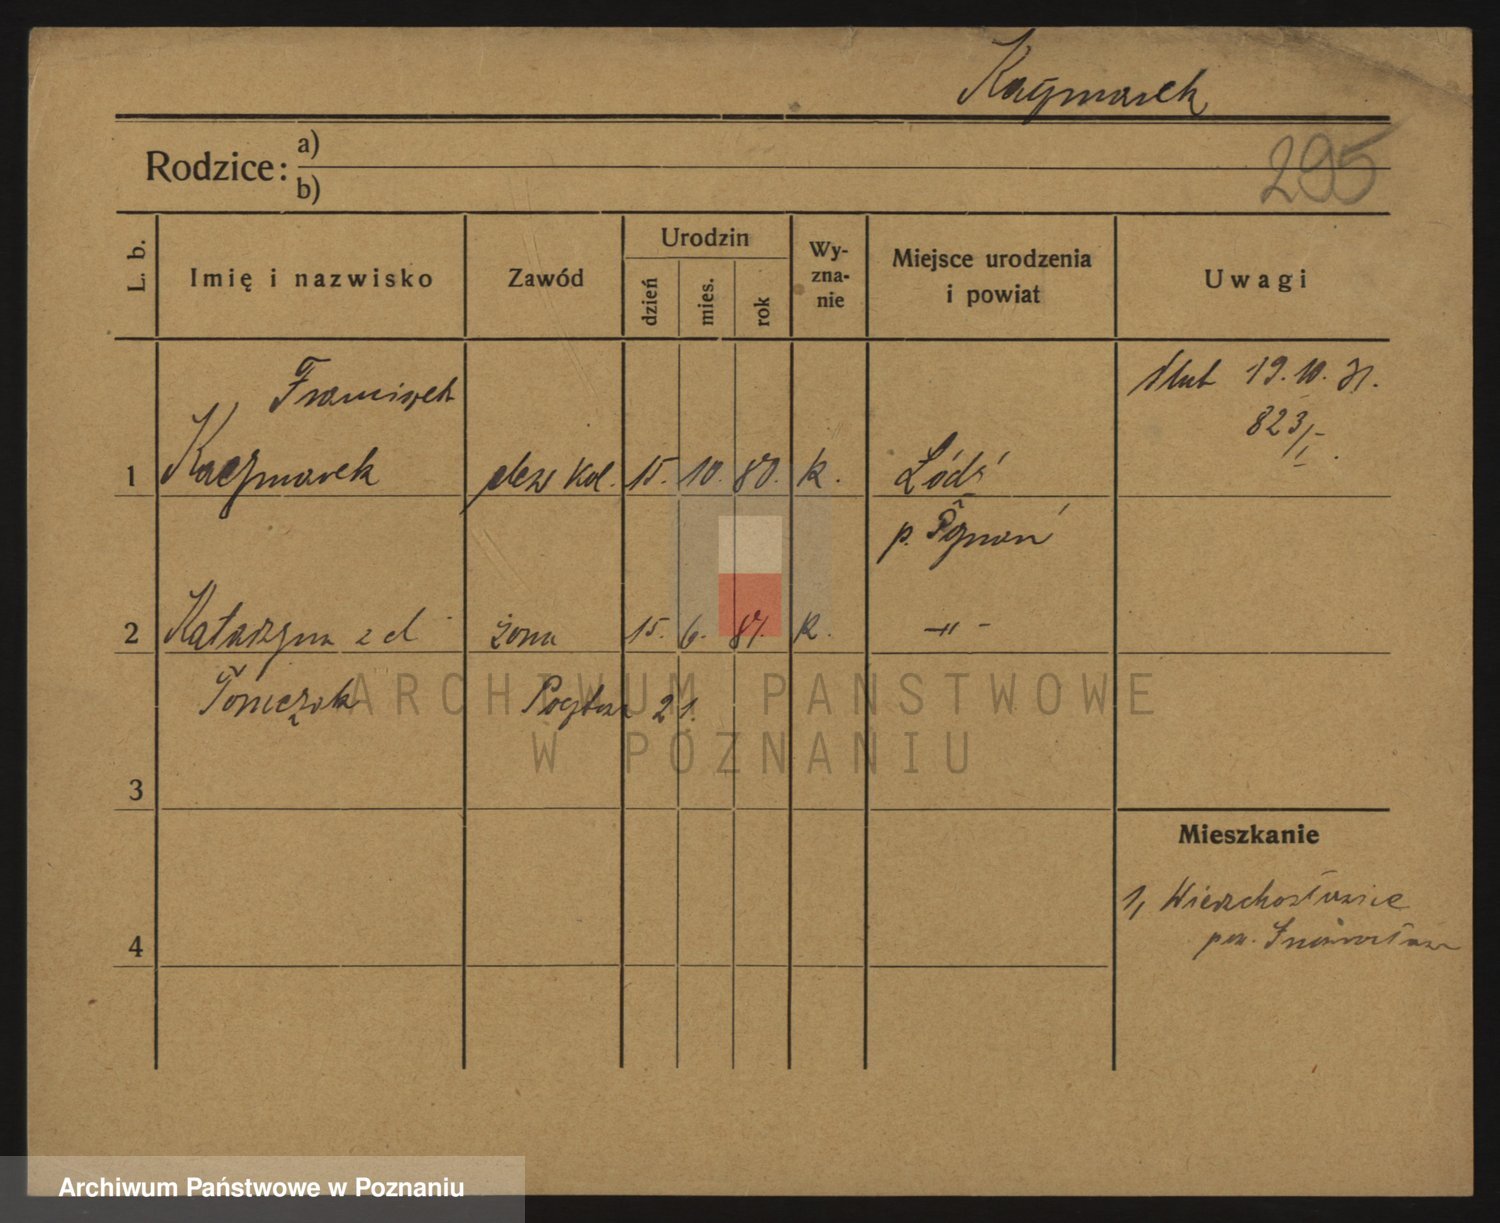 Kaczmarek
295
Rodzice: a)
b)
L. b.
Imię i nazwisko
Zawód
Urodzin
dzień
mies.
rok
Wy-
zna-
nie
Miejsce urodzenia
i powiat
Uwagi
Franciszek
ślub 19. 10. 31.
823/I.
1 Kaczmarek kol. 15. 10. 80. k. Łódź
p. Poznań
2 Katarzyna z d żona 15. 6. 87. k. -"-
Tomczak 21.
ARCHIWUM PAŃSTWOWE
W POZNANIU
3
Mieszkanie
1, Wierzchosławice
pow. Inowrocław
4
Archiwum Państwowe w Poznaniu